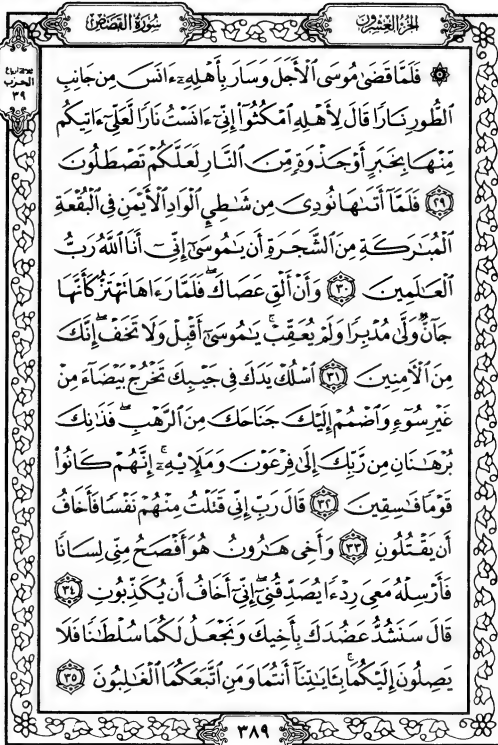 الجزء العشرون
سورة القصص
ثلاثة أرباع
الحزب
٣٩
۞ فَلَمَّا قَضَىٰ مُوسَى ٱلْأَجَلَ وَسَارَ بِأَهْلِهِۦٓ ءَانَسَ مِن جَانِبِ
ٱلطُّورِ نَارًا قَالَ لِأَهْلِهِ ٱمْكُثُوٓا۟ إِنِّىٓ ءَانَسْتُ نَارًا لَّعَلِّىٓ ءَاتِيكُم
مِّنْهَا بِخَبَرٍ أَوْ جَذْوَةٍ مِّنَ ٱلنَّارِ لَعَلَّكُمْ تَصْطَلُونَ
٢٩ فَلَمَّآ أَتَىٰهَا نُودِىَ مِن شَٰطِئِ ٱلْوَادِ ٱلْأَيْمَنِ فِى ٱلْبُقْعَةِ
ٱلْمُبَٰرَكَةِ مِنَ ٱلشَّجَرَةِ أَن يَٰمُوسَىٰٓ إِنِّىٓ أَنَا ٱللَّهُ رَبُّ
ٱلْعَٰلَمِينَ ٣٠ وَأَنْ أَلْقِ عَصَاكَ ۖ فَلَمَّا رَءَاهَا تَهْتَزُّ كَأَنَّهَا
جَآنٌّ وَلَّىٰ مُدْبِرًا وَلَمْ يُعَقِّبْ ۚ يَٰمُوسَىٰٓ أَقْبِلْ وَلَا تَخَفْ ۖ إِنَّكَ
مِنَ ٱلْءَامِنِينَ ٣١ ٱسْلُكْ يَدَكَ فِى جَيْبِكَ تَخْرُجْ بَيْضَآءَ مِنْ
غَيْرِ سُوٓءٍ وَٱضْمُمْ إِلَيْكَ جَنَاحَكَ مِنَ ٱلرَّهْبِ ۖ فَذَٰنِكَ
بُرْهَٰنَانِ مِن رَّبِّكَ إِلَىٰ فِرْعَوْنَ وَمَلَإِي۟هِۦٓ ۚ إِنَّهُمْ كَانُوا۟
قَوْمًا فَٰسِقِينَ ٣٢ قَالَ رَبِّ إِنِّى قَتَلْتُ مِنْهُمْ نَفْسًا فَأَخَافُ
أَن يَقْتُلُونِ ٣٣ وَأَخِى هَٰرُونُ هُوَ أَفْصَحُ مِنِّى لِسَانًا
فَأَرْسِلْهُ مَعِىَ رِدْءًا يُصَدِّقُنِىٓ ۖ إِنِّىٓ أَخَافُ أَن يُكَذِّبُونِ ٣٤
قَالَ سَنَشُدُّ عَضُدَكَ بِأَخِيكَ وَنَجْعَلُ لَكُمَا سُلْطَٰنًا فَلَا
يَصِلُونَ إِلَيْكُمَا ۚ بِـَٔايَٰتِنَآ أَنتُمَا وَمَنِ ٱتَّبَعَكُمَا ٱلْغَٰلِبُونَ ٣٥
٣٨٩